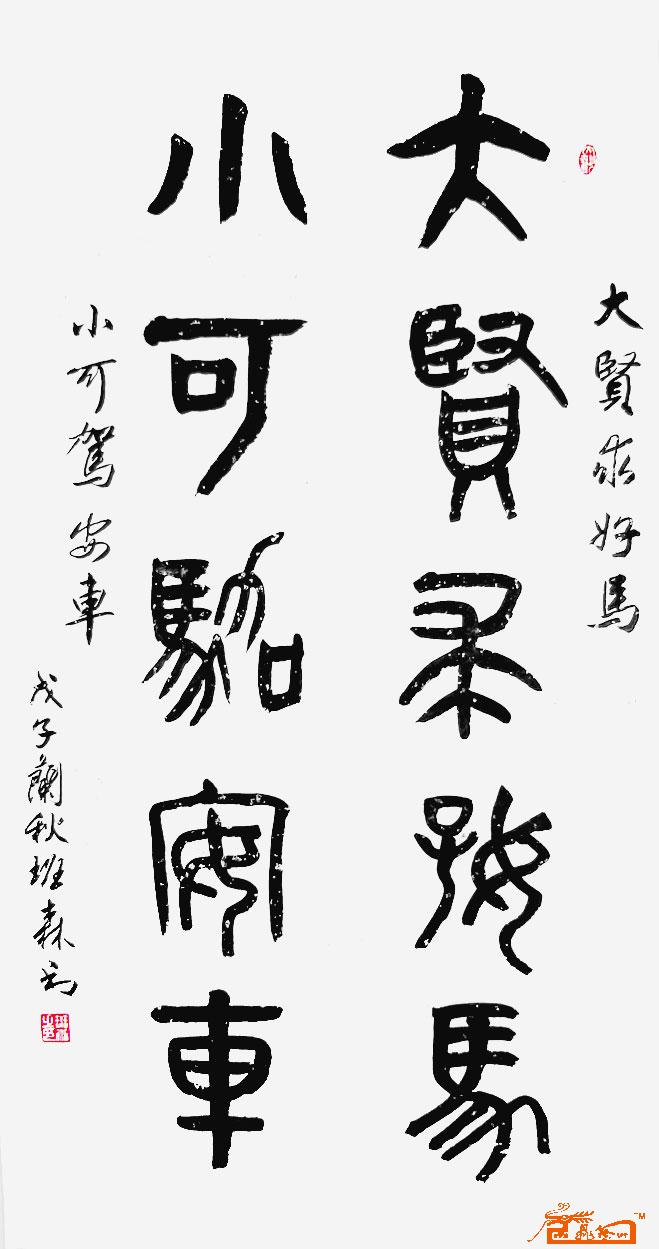 大賢求好馬
大賢求好馬
小可駕安車
小可駕安車
戊子蘭秋班森